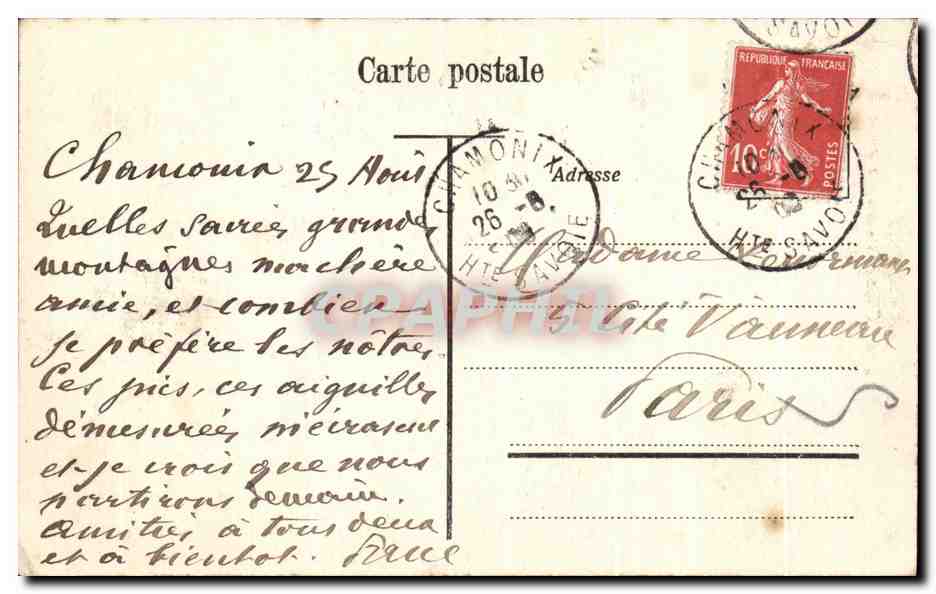 Carte postale
RÉPUBLIQUE FRANÇAISE
10 c
POSTES
CHAMONIX
10
26 -8
HTE SAVOIE
CHAMONIX
10
26 -8
HTE SAVOIE
SAVOI
Adresse
Chamonix 25 Août
Quelles sacrées grandes
montagnes ma chère
amie, et combien
je préfère les nôtres.
Ces pics, ces aiguilles
démesurées m'écrasent
et je crois que nous
partirons demain.
Amitiés à tous deux
et à bientot.
Madame
5 Cité Vanneau
Paris
CPAPHIL